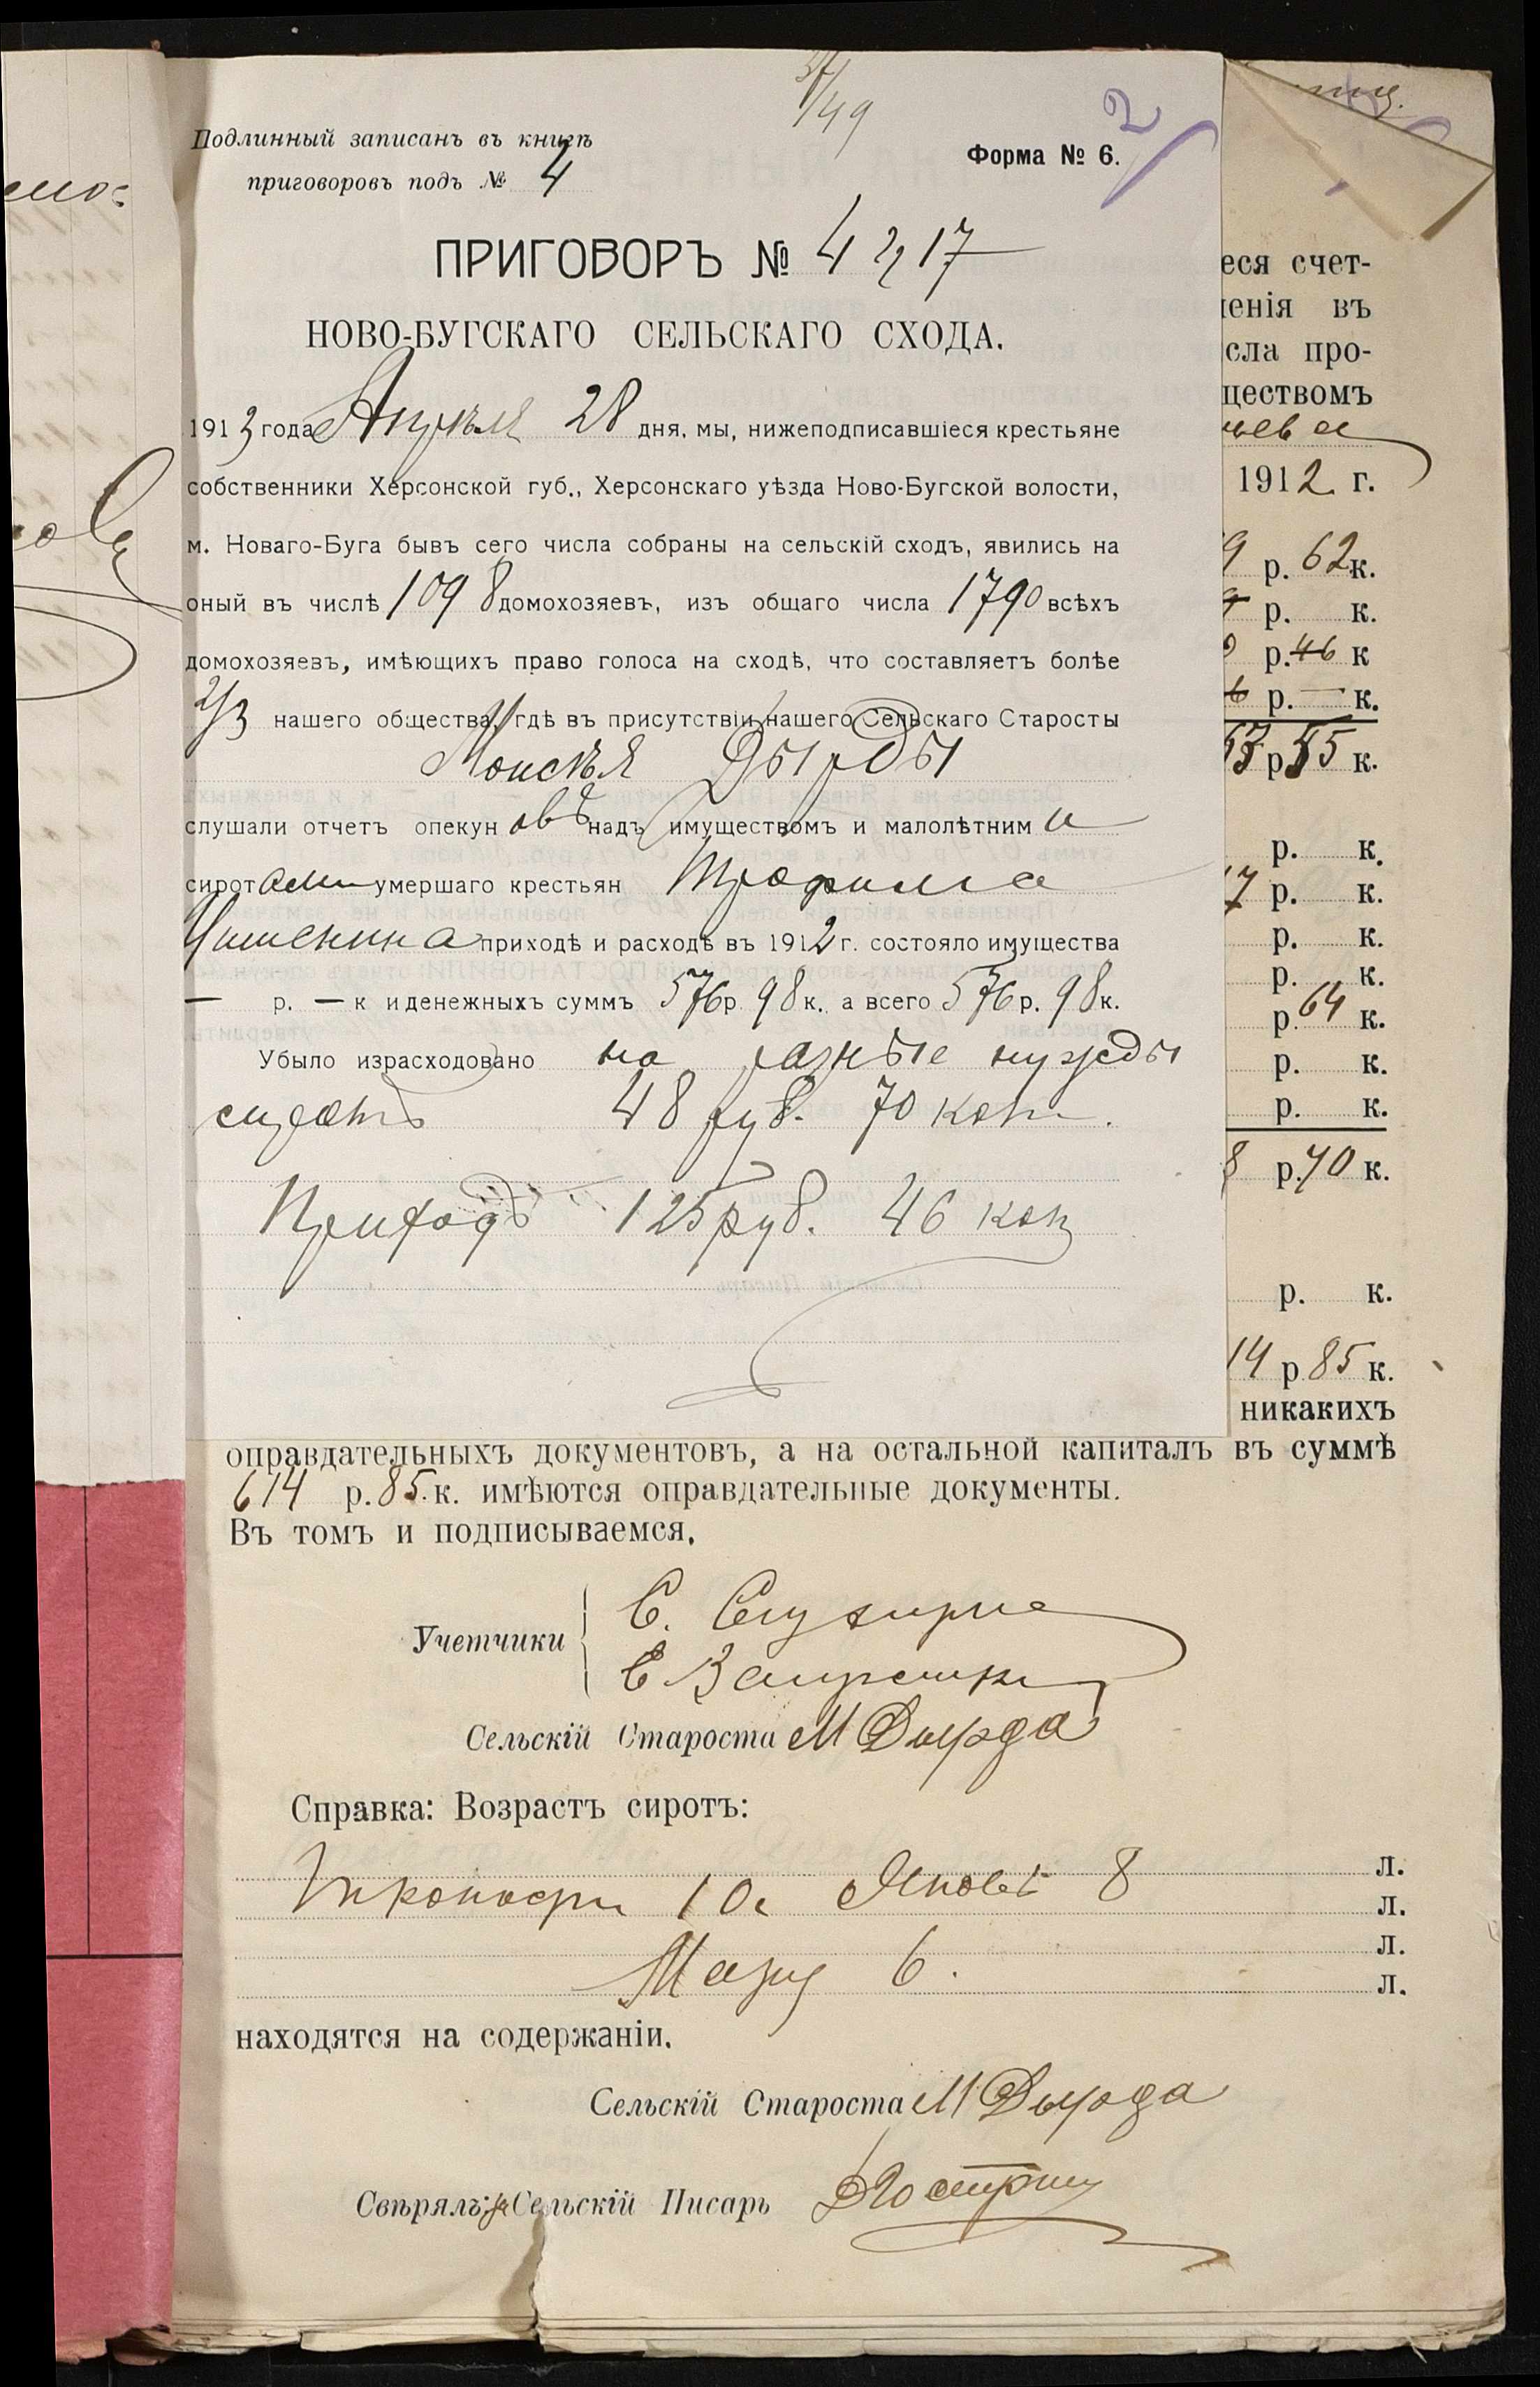 Подлинный записанъ въ книгѣ
приговоровъ подъ № 4
Форма № 6.
2
ПРИГОВОРЪ № 4
НОВО-БУГСКАГО СЕЛЬСКАГО СХОДА.
1913 года Апрѣля 28 дня, мы, нижеподписавшіеся крестьяне
собственники Херсонской губ., Херсонскаго уѣзда Ново-Бугской волости,
м. Новаго-Буга бывъ сего числа собраны на сельскій сходъ, явились на
оный въ числѣ 1098 домохозяевъ, изъ общаго числа 1790 всѣхъ
домохозяевъ, имѣющихъ право голоса на сходѣ, что составляетъ болѣе
2/3 нашего общества, гдѣ въ присутствіи нашего Сельскаго Старосты
Моисѣя Дырды
слушали отчетъ опекуновъ надъ имуществомъ и малолѣтними
сиротами умершаго крестьян Трофима
приходѣ и расходѣ въ 1912 г. состояло имущества
— р. — к и денежныхъ суммъ 576 р. 98 к. а всего 576 р. 98 к.
Убыло израсходовано на разные нужды
сиротъ 48 руб. 70 коп.
Приходъ 125 руб. 46 коп
еся счет-
ленія въ
сла про-
ществомъ
1912 г.
9 р. 62 к.
р. к.
р. 46 к
р. — к.
р. 55 к.
р. к.
7 р. к.
р. к.
р. к.
р. 64 к.
р. к.
р. к.
8 р. 70 к.
р. к.
14 р 85 к.
никакихъ
оправдательныхъ документовъ, а на остальной капиталъ въ суммѣ
614 р. 85 к. имѣются оправдательные документы.
Въ томъ и подписываемся.
Учетчики
С.
Сельскій Староста М Дырда
Справка: Возрастъ сиротъ:
10 8 л.
л.
6. л.
л.
находятся на содержаніи.
Сельскій Староста М Дырда
Свѣрялъ: Сельскій Писарь